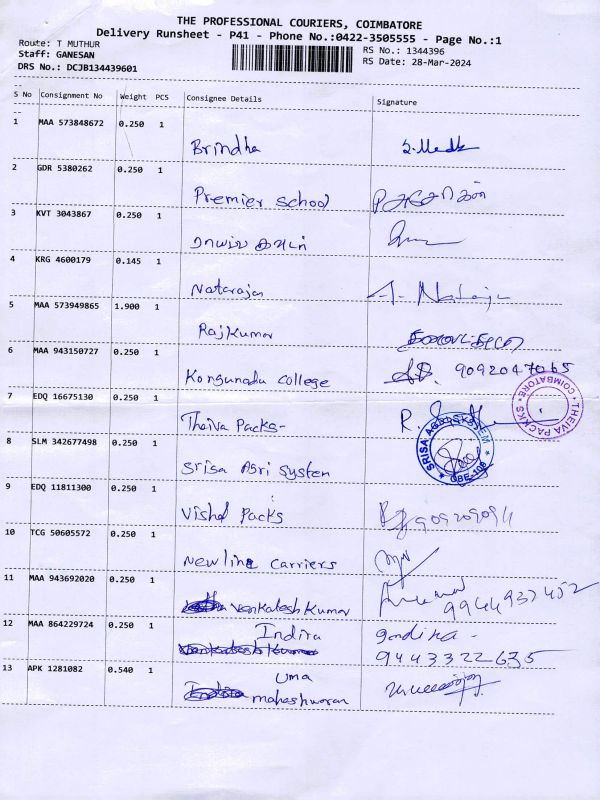 THE PROFESSIONAL COURIERS, COIMBATORE
Delivery Runsheet - P41 - Phone No.:0422-3505555 - Page No.:1
Route: T MUTHUR
Staff: GANESAN
DRS No.: DCJB134439601
RS No.: 1344396
RS Date: 28-Mar-2024
S No Consignment No Weight PCS Consignee Details Signature
1 MAA 573848672 0.250 1
Brindha
2 GDR 5380262 0.250 1
Premier School
3 KVT 3043867 0.250 1
4 KRG 4600179 0.145 1
Natarajan
5 MAA 573949865 1.900 1
Rajkumar
6 MAA 943150727 0.250 1
Kongunadu college 9092047065
7 EDQ 16675130 0.250 1
Theiva Packs-
THEIVA PACKS COIMBATORE
8 SLM 342677498 0.250 1
Srisa Agri System
SRISA AGRI SYSTEM CBE-108
9 EDQ 11811300 0.250 1
Vishal Packs
10 TCG 50605572 0.250 1
Newline carriers
11 MAA 943692020 0.250 1
Venkatesh Kumar 9944937452
12 MAA 864229724 0.250 1
Indira
9443322635
13 APK 1281082 0.540 1
Uma
maheshwaran